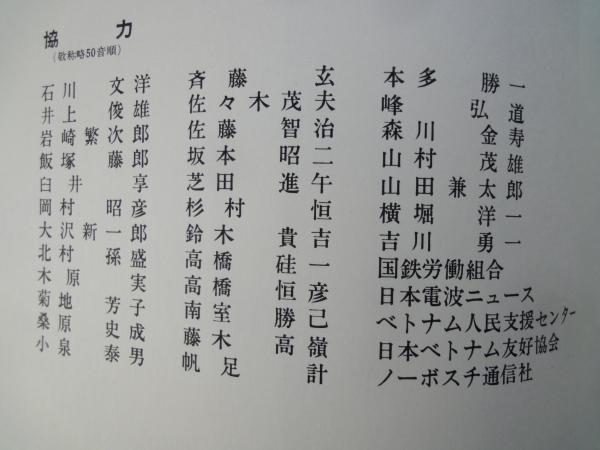 協力
(敬称略50音順)
石川文洋
井上俊雄
岩崎繁次郎
飯塚藤郎
臼井享
岡村昭彦
大沢新一郎
北村孫盛
木原実
菊地芳子
桑原史成
小泉泰男
斉藤玄
佐々木茂夫
佐藤智治
坂本昭二
芝田進午
杉村恒
鈴木貴吉
高橋硅一
高橋恒彦
南室勝己
藤木高嶺
帆足計
本多勝一
峰弘道
森川金寿
山村茂雄
山田兼太郎
横堀洋一
吉川勇一
国鉄労働組合
日本電波ニュース
ベトナム人民支援センター
日本ベトナム友好協会
ノーボスチ通信社